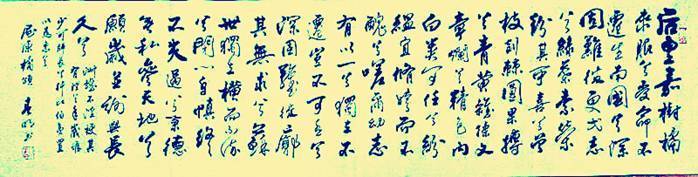 后皇嘉樹橘
來服兮受命不
遷生南國兮深
固難徙更弌志
兮綠葉素榮
紛其可喜兮曾
枝剡棘圓果摶
兮青黃雜糅文
章爛兮精色內
白類可任兮紛
緼宜脩姱而不
醜兮嗟爾幼志
有以異兮獨立不
遷豈不可喜兮
深固難徙廓
其無求兮蘇
世獨立橫而不流
兮閉心自慎終
不失過兮秉德
無私參天地兮
願歲並謝與長
友兮
淑離不淫梗其
有理兮年歲雖
少可師長兮行比伯夷置
以為像兮
屈原橘頌